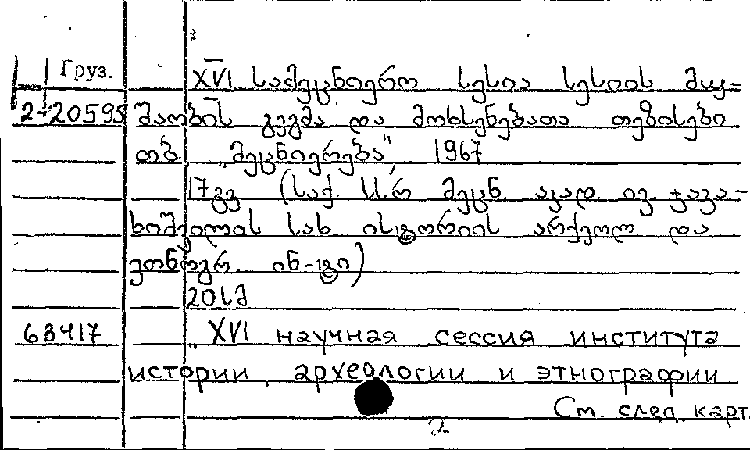 Груз.
XVI სამეცნიერო სესია სესიის მუ-
2-20595 შაობის გეგმა და მოხსენებათა თეზისები
თბ „მეცნიერება", 1967
17გვ (საქ. სსრ მეცნ აკად ივ ჯავა-
ხიშვილის სახ ისტორიის არქეოლ და
ეთნოგრ. ინ-ტი)
20სმ
63417 XVI научная сессия института
истории, археологии и этнографии
См. след. карт.